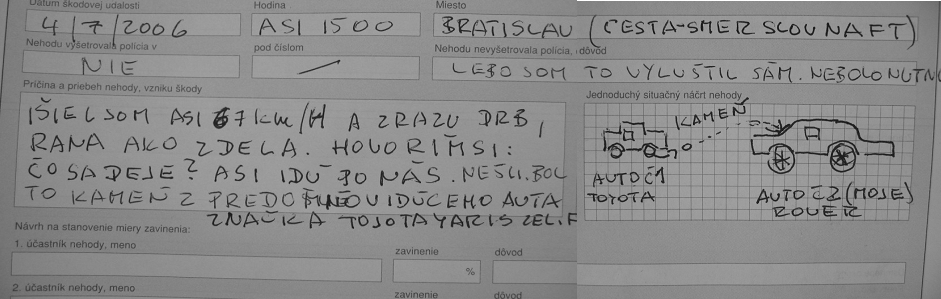 Dátum škodovej udalosti Hodina Miesto
4/7/2006 ASI 1500 BRATISLAV (CESTA-SMER SLOVNAFT)
Nehodu vyšetrovala polícia v pod číslom Nehodu nevyšetrovala polícia, dôvod
NIE LEBO SOM TO VYLUŠTIL SÁM. NEBOLO NUTN
Príčina a priebeh nehody, vzniku škody
IŠIEL SOM ASI 67 km/H A ZRAZU DRB,
RANA AKO Z DELA. HOVORÍM SI:
ČO SA DEJE? ASI IDÚ PO NÁS. NEŠLI. BOL
TO KAMEŇ Z IDÚCEHO AUTA
ZNAČKA TOJOTA YARIS ZEL.F
Jednoduchý situačný náčrt nehody
KAMEŇ
AUTO Č1
TOYOTA
AUTO Č2 (MOJE)
ROVER
Návrh na stanovenie miery zavinenia:
1. účastník nehody, meno zavinenie dôvod
%
2. účastník nehody, meno zavinenie dôvod